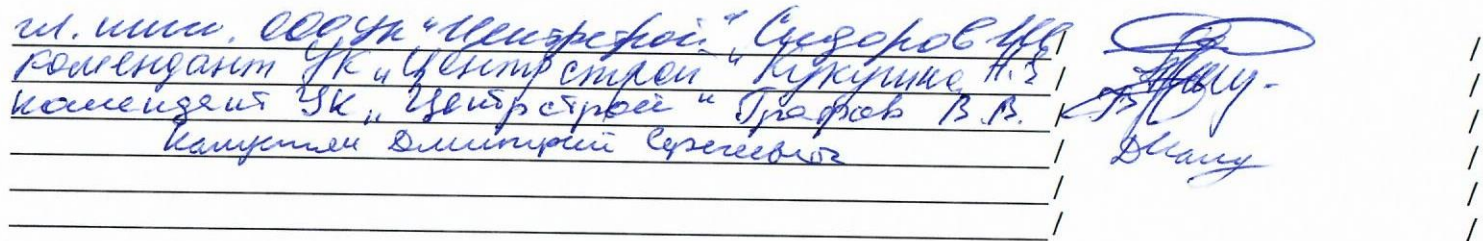 гл. инж. ООО УК "Центрстрой" Сидоров /
комендант УК „Центрстрой" Кукушка Н.З /
комендант УК „Центрстрой" Графов В.В. /
Дмитрий Сергеевич /